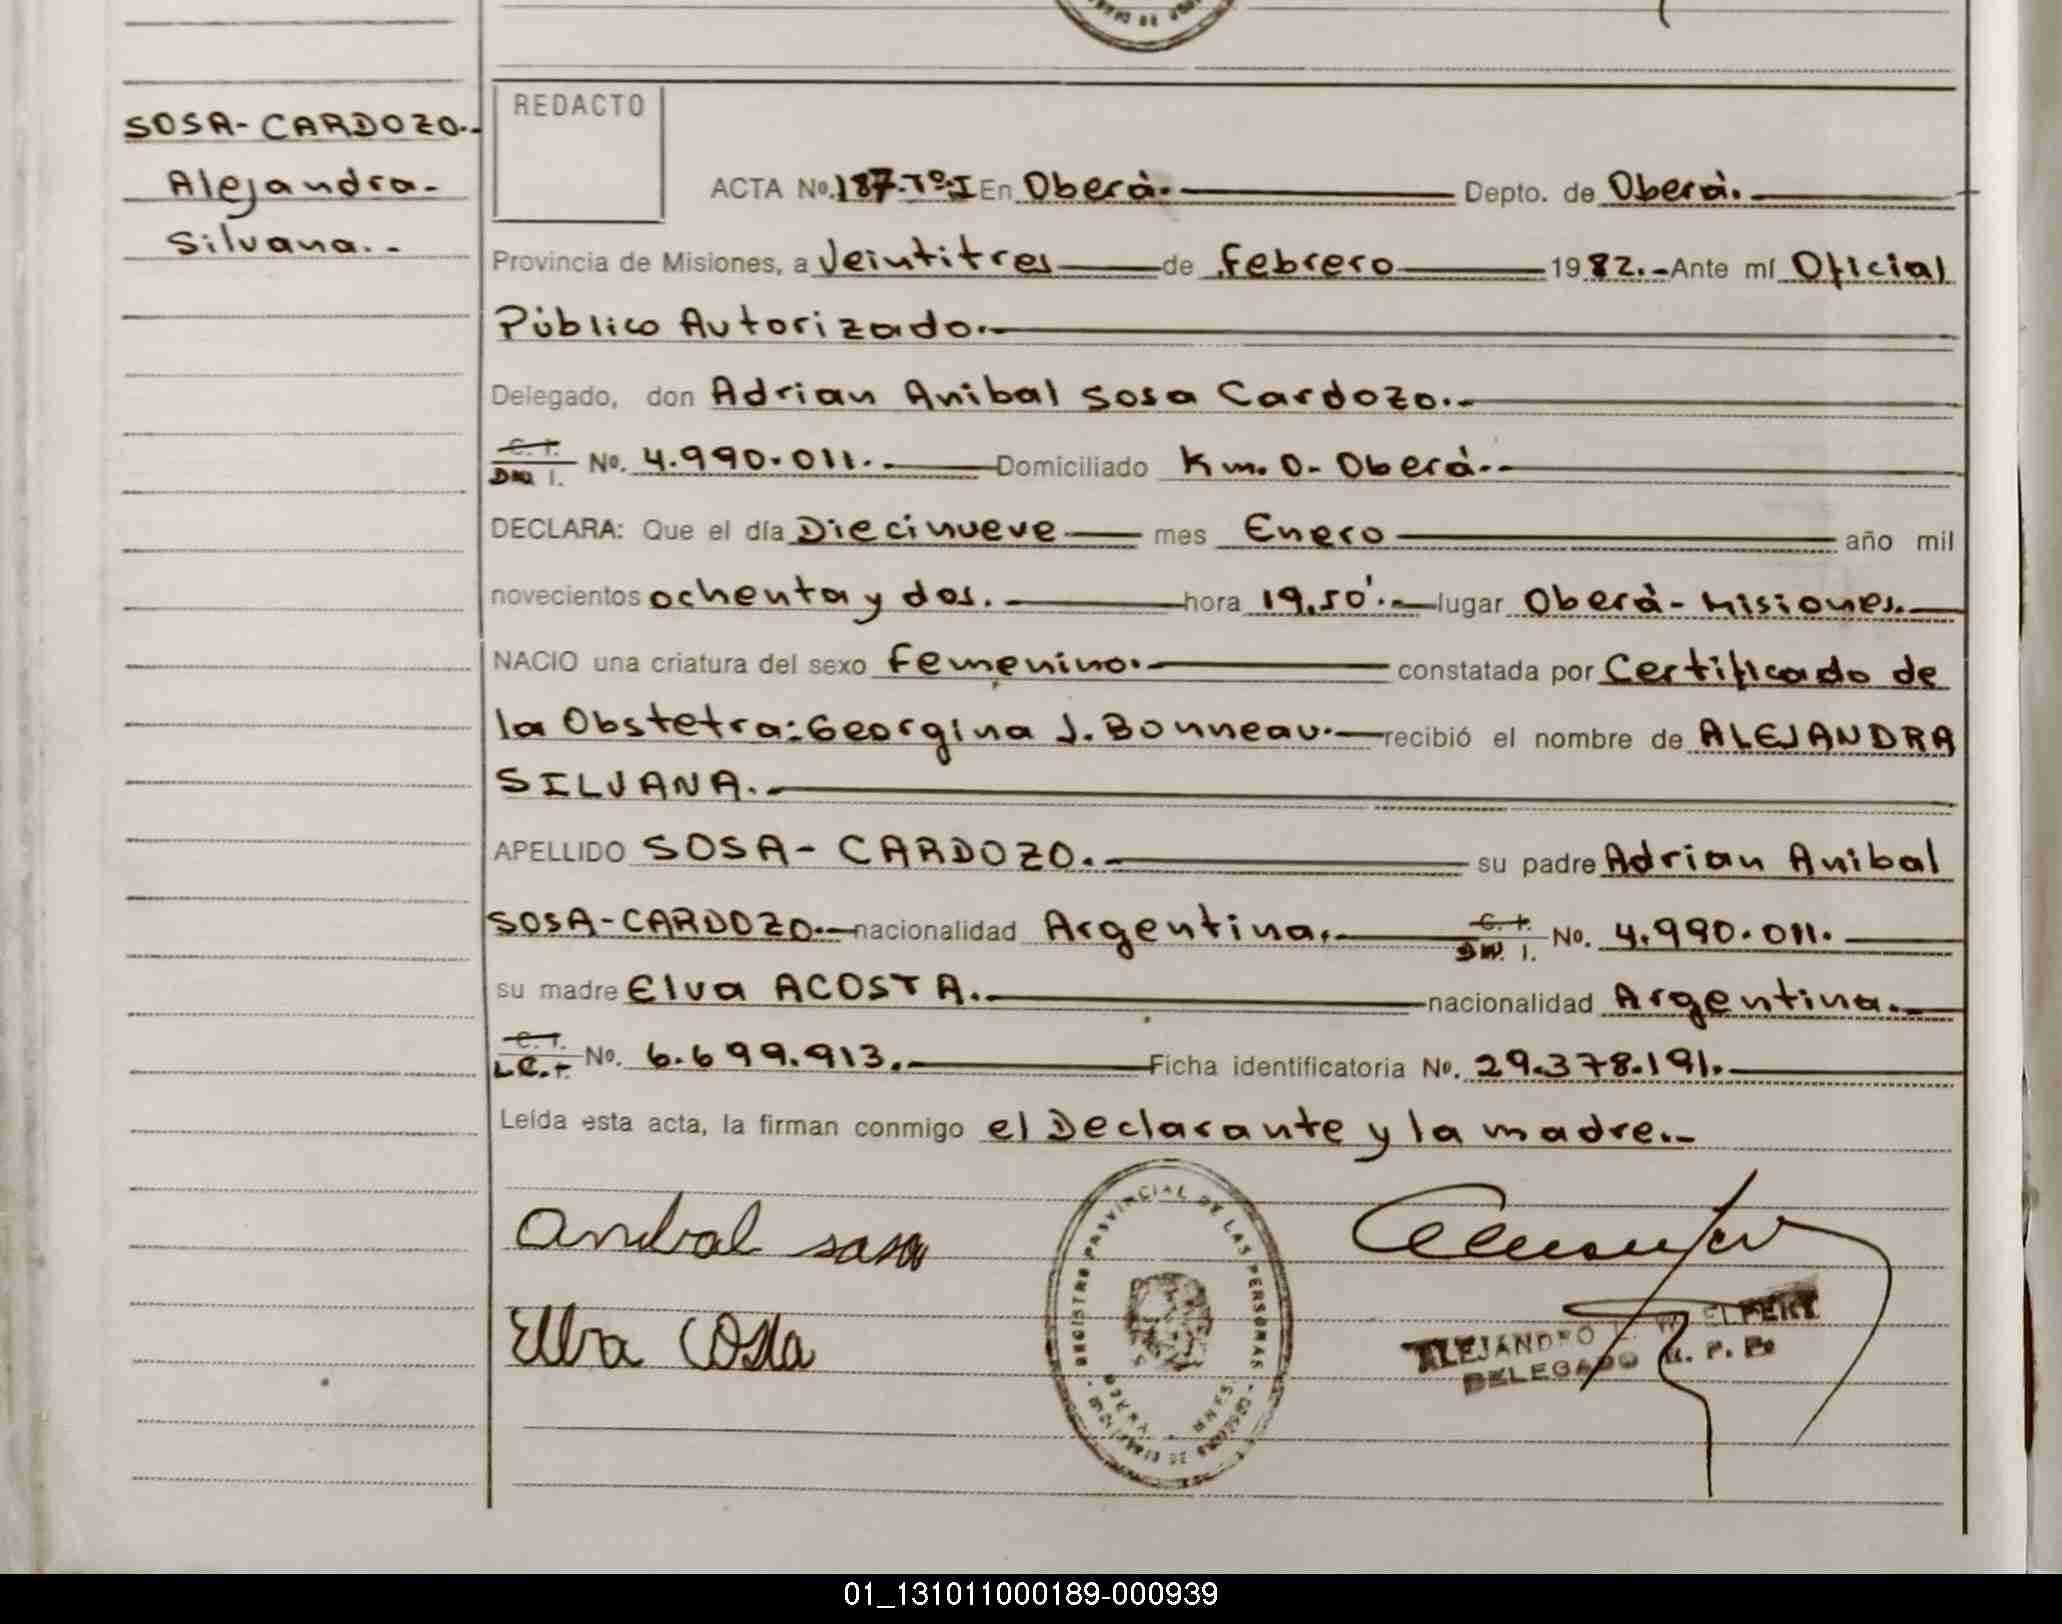 SOSA-CARDOZO.-
Alejandra-
Silvana..-
REDACTO
ACTA No. 187-Tº-I En Oberá.- Depto. de Oberá.-
Provincia de Misiones, a Veintitres de Febrero 1982.- Ante mí Oficial
Público Autorizado.-
Delegado, don Adrian Anibal Sosa Cardozo.-
C. I.
DNI I. No. 4.990.011.- Domiciliado Km. 0- Oberá.-
DECLARA: Que el día Diecinueve mes Enero año mil
novecientos ochenta y dos. hora 19,50'.- lugar Oberá- Misiones.-
NACIO una criatura del sexo Femenino.- constatada por Certificado de
la Obstetra: Georgina J. Bonneau.- recibió el nombre de ALEJANDRA
SILVANA.-
APELLIDO SOSA- CARDOZO.- su padre Adrian Anibal
SOSA-CARDOZO.- nacionalidad Argentina.- C. I.
DNI. I. No. 4.990.011.
su madre Elva ACOSTA.- nacionalidad Argentina.-
C. I.
L.C.I. No. 6.699.913.- Ficha identificatoria No. 29.378.191.-
Leída esta acta, la firman conmigo el Declarante y la madre.-
Anibal sosa
Elba Costa
REGISTRO PROVINCIAL DE LAS PERSONAS
OBERA
MNES
ALEJANDRO
DELEGADO R. P. P.
01_131011000189-000939